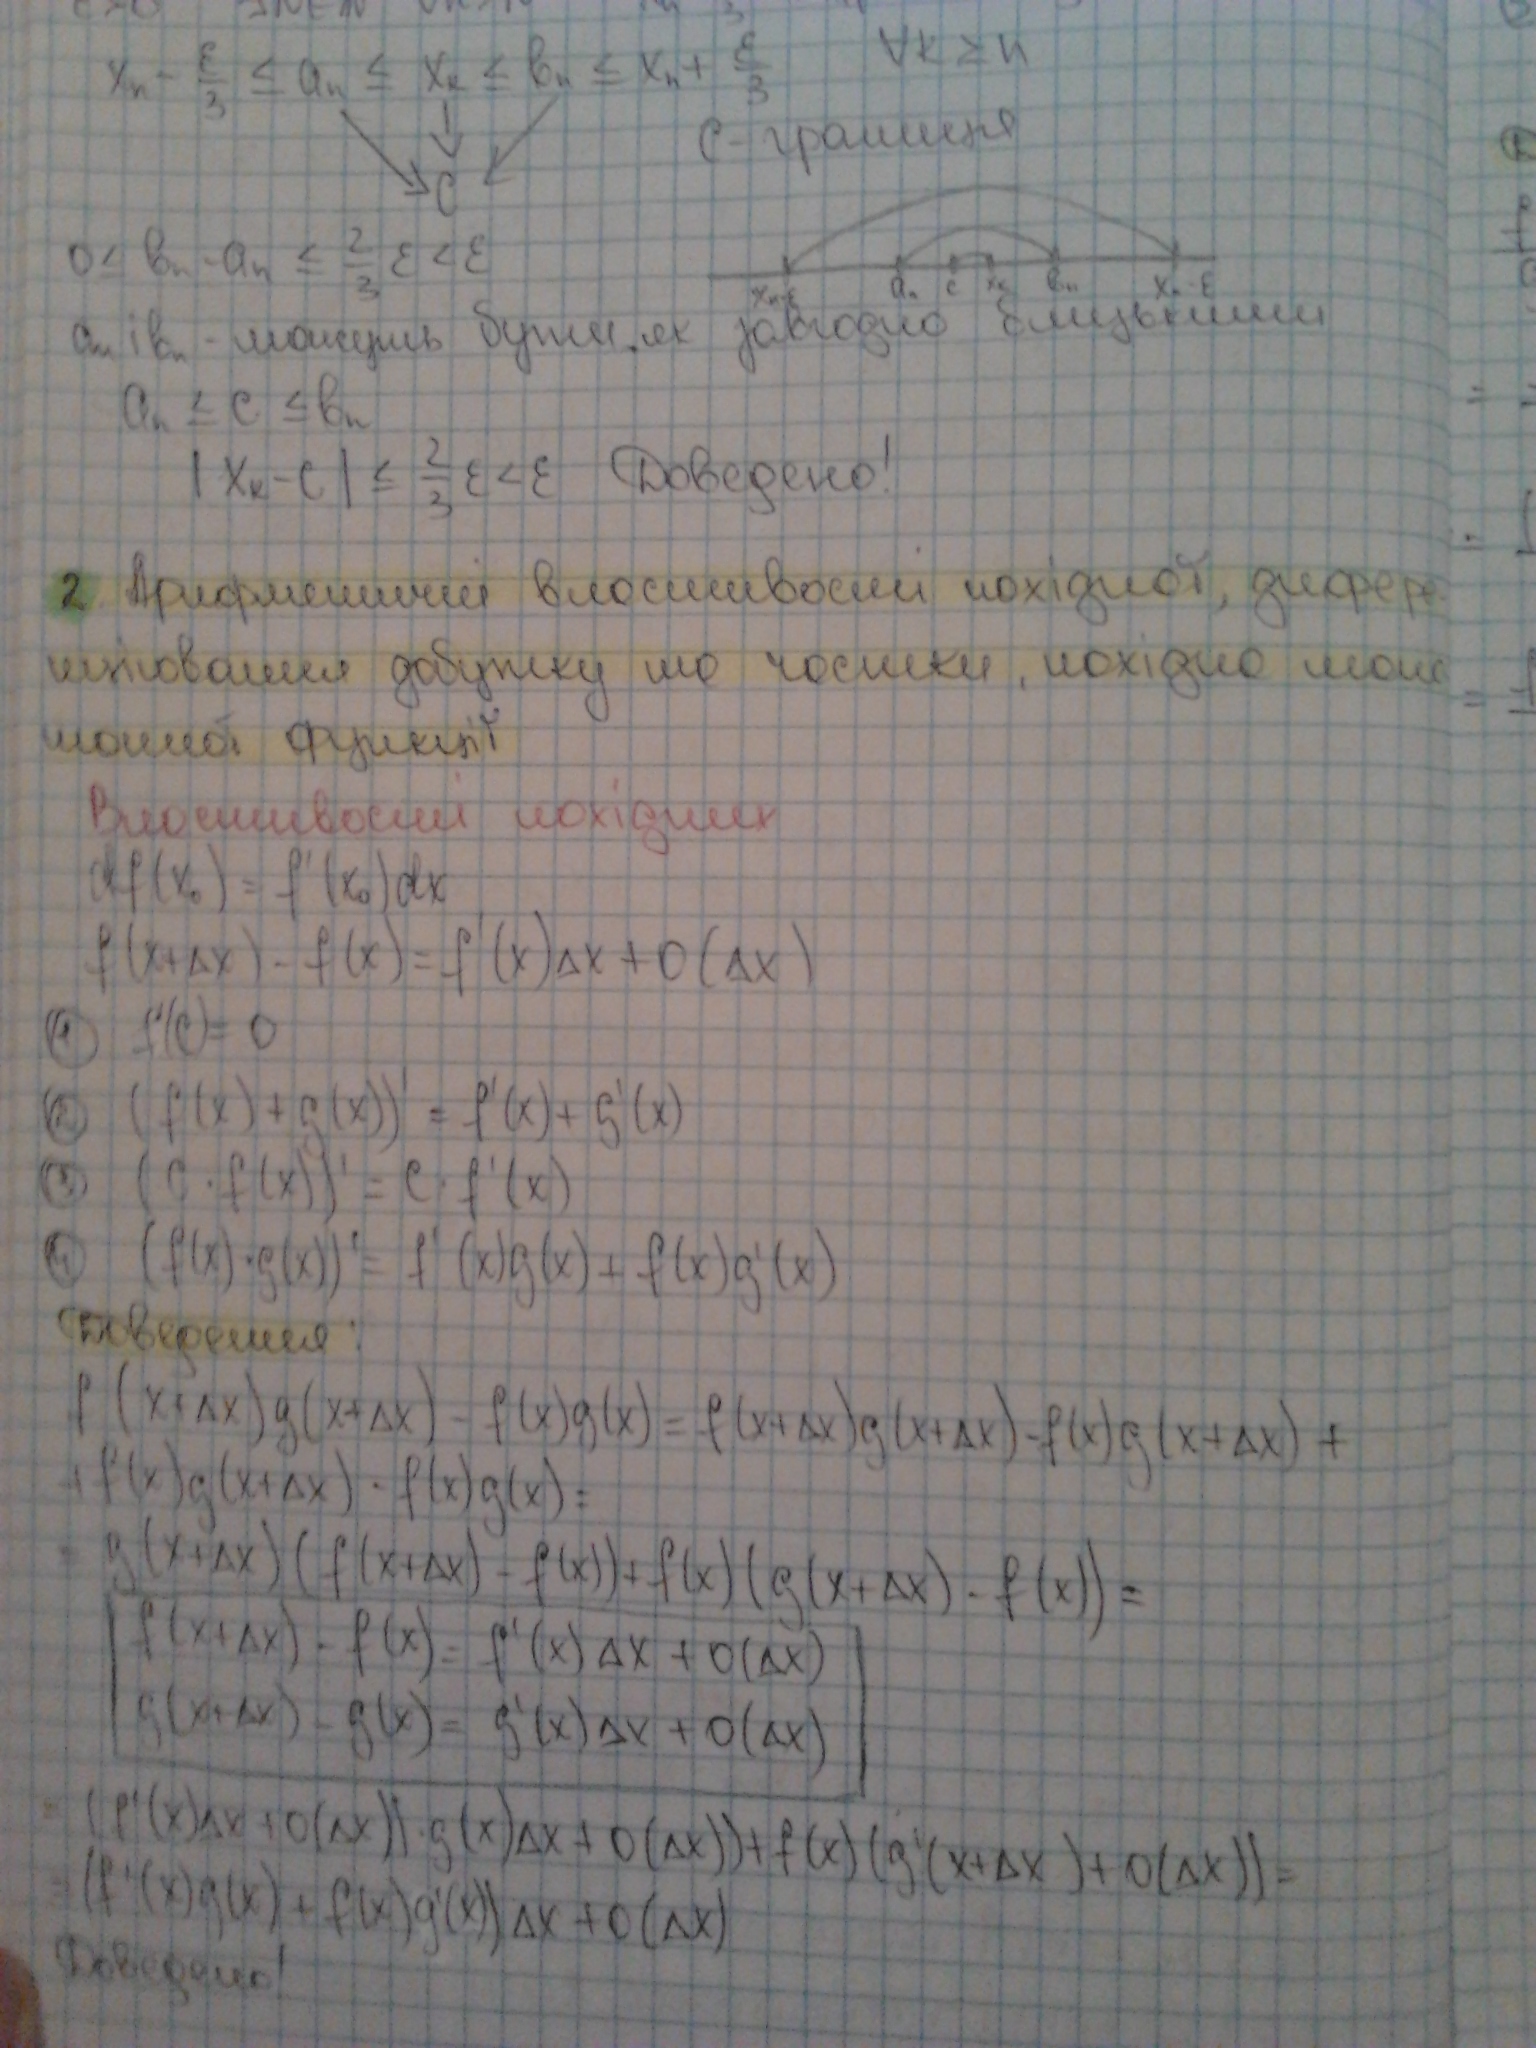 xₙ - ε/3 ≤ aₙ ≤ xₖ ≤ bₙ ≤ xₙ + ε/3 ∀k ≥ n
C - границя
C
0 < bₙ - aₙ ≤ 2/3 ε < ε
xₙ-ε aₙ c xₖ bₙ xₙ-ε
aₙ і bₙ - можуть бути як завгодно близькими
aₙ ≤ c ≤ bₙ
|xₖ - c| ≤ 2/3 ε < ε Доведено!
2. Арифметичні властивості похідної, дифере-
нціювання добутку та частки, похідна
функції
Властивості похідних
df(x₀) = f'(x₀)dx
f(x+Δx) - f(x) = f'(x)Δx + o(Δx)
① f'(C) = 0
② (f(x) + g(x))' = f'(x) + g'(x)
③ (C · f(x))' = C · f'(x)
④ (f(x) · g(x))' = f'(x)g(x) + f(x)g'(x)
Доведення:
f(x+Δx)g(x+Δx) - f(x)g(x) = f(x+Δx)g(x+Δx) - f(x)g(x+Δx) +
+ f(x)g(x+Δx) - f(x)g(x) =
= g(x+Δx)(f(x+Δx) - f(x)) + f(x)(g(x+Δx) - f(x)) =
f(x+Δx) - f(x) = f'(x)Δx + o(Δx)
g(x+Δx) - g(x) = g'(x)Δx + o(Δx)
= (f'(x)Δx + o(Δx))·g(x)Δx + o(Δx)) + f(x)(g'(x+Δx) + o(Δx)) =
= (f'(x)g(x) + f(x)g'(x))Δx + o(Δx)
Доведено!